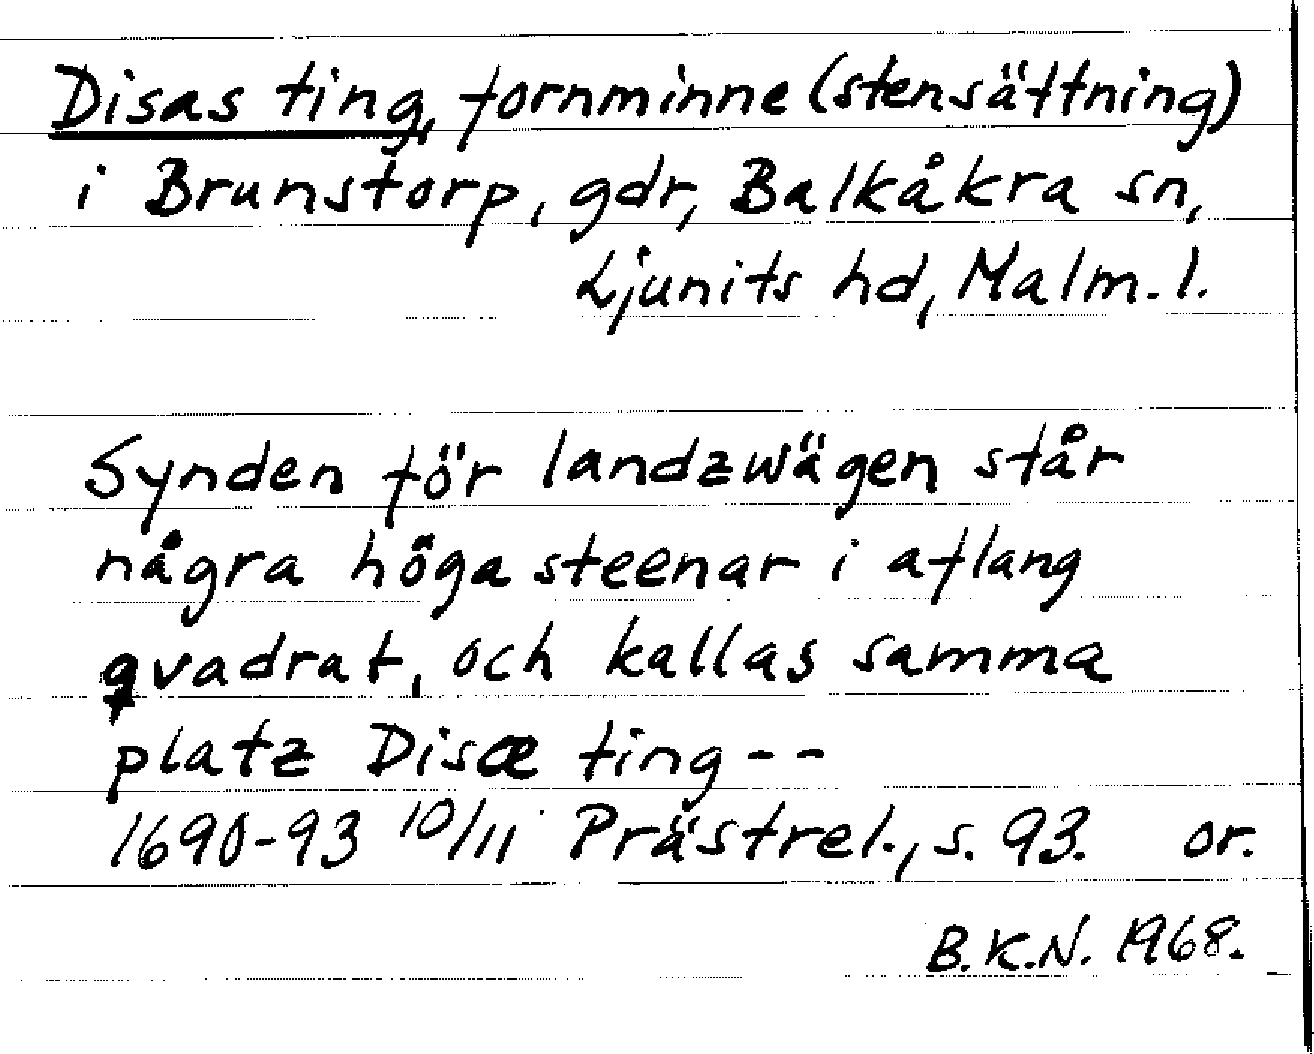 Disas ting, fornminne (stensättning)
i Brunstorp, gdr, Balkåkra sn,
Ljunits hd, Malm. l.
Synden för landzwägen står
några höga steenar i aflang
qvadrat, och kallas samma
platz Disæ ting--
1690-93 10/11 Prästrel., s. 93. or.
B.K.N. 1968.